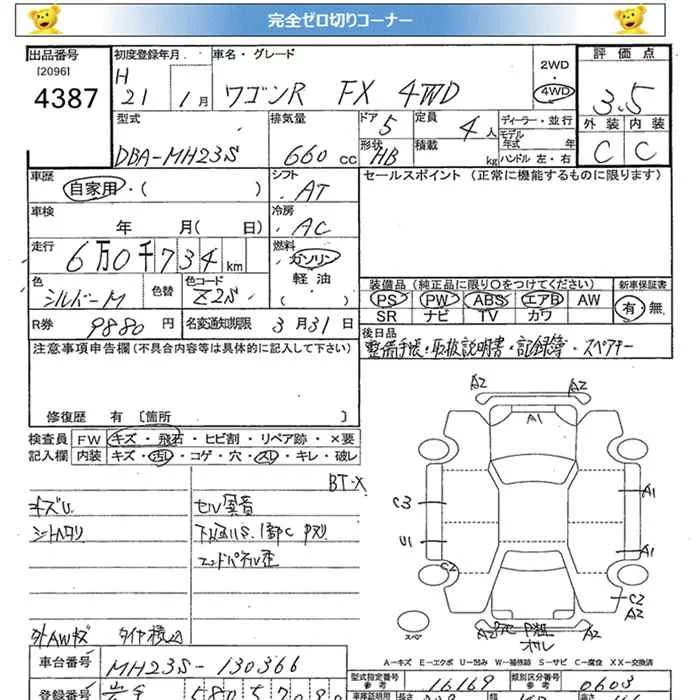 完全ゼロ切りコーナー
出品番号 初度登録年月 車名・グレード 2WD 評価点
[2096] H
4387 21 1月 ワゴンR FX 4WD 4WD 3.5
型式 排気量 ドア 5 定員 4人 ディーラー・並行 外装 内装
モデル年式 年
DBA-MH23S 660cc 形状 HB 積載 kg ハンドル 左・右 C C
車歴 シフト セールスポイント (正常に機能するものに限ります)
自家用・( ) AT
車検 冷房
年 月( 日) AC
走行 燃料
6万0千734km ガソリン
軽油
( )
色 色替 色コード 装備品 (純正品に限り○をつけてください) 新車保証書
シルバーM Z2S PS PW ABS エアB AW 有・無
SR ナビ TV カワ
R券 9880円 名変通知期限 3月31日 後日品
整備手帳・取扱説明書・記録簿・スペアキー
注意事項申告欄 (不具合内容等は具体的に記入して下さい)
修復歴 有 [箇所 ]
検査員 FW キズ・飛石・ヒビ割・リペア跡・×要
記入欄 内装 キズ・汚れ・コゲ・穴・スレ・キレ・破レ
BT-X
キズU セル異音
シートヘタリ 下回りS、1部C Pヌリ
エンドパネル歪
外AWキズ
A2 A2
A1
C3 A1
U1 A1
C2 C2
A2
スペア
A…キズ E…エクボ U…凹み W…補修跡 S…サビ C…腐食 XX…交換済
車台番号 MH23S-130366
型式指定番号 参考 16169 類別区分番号 参考 0603
登録番号 岩手 580